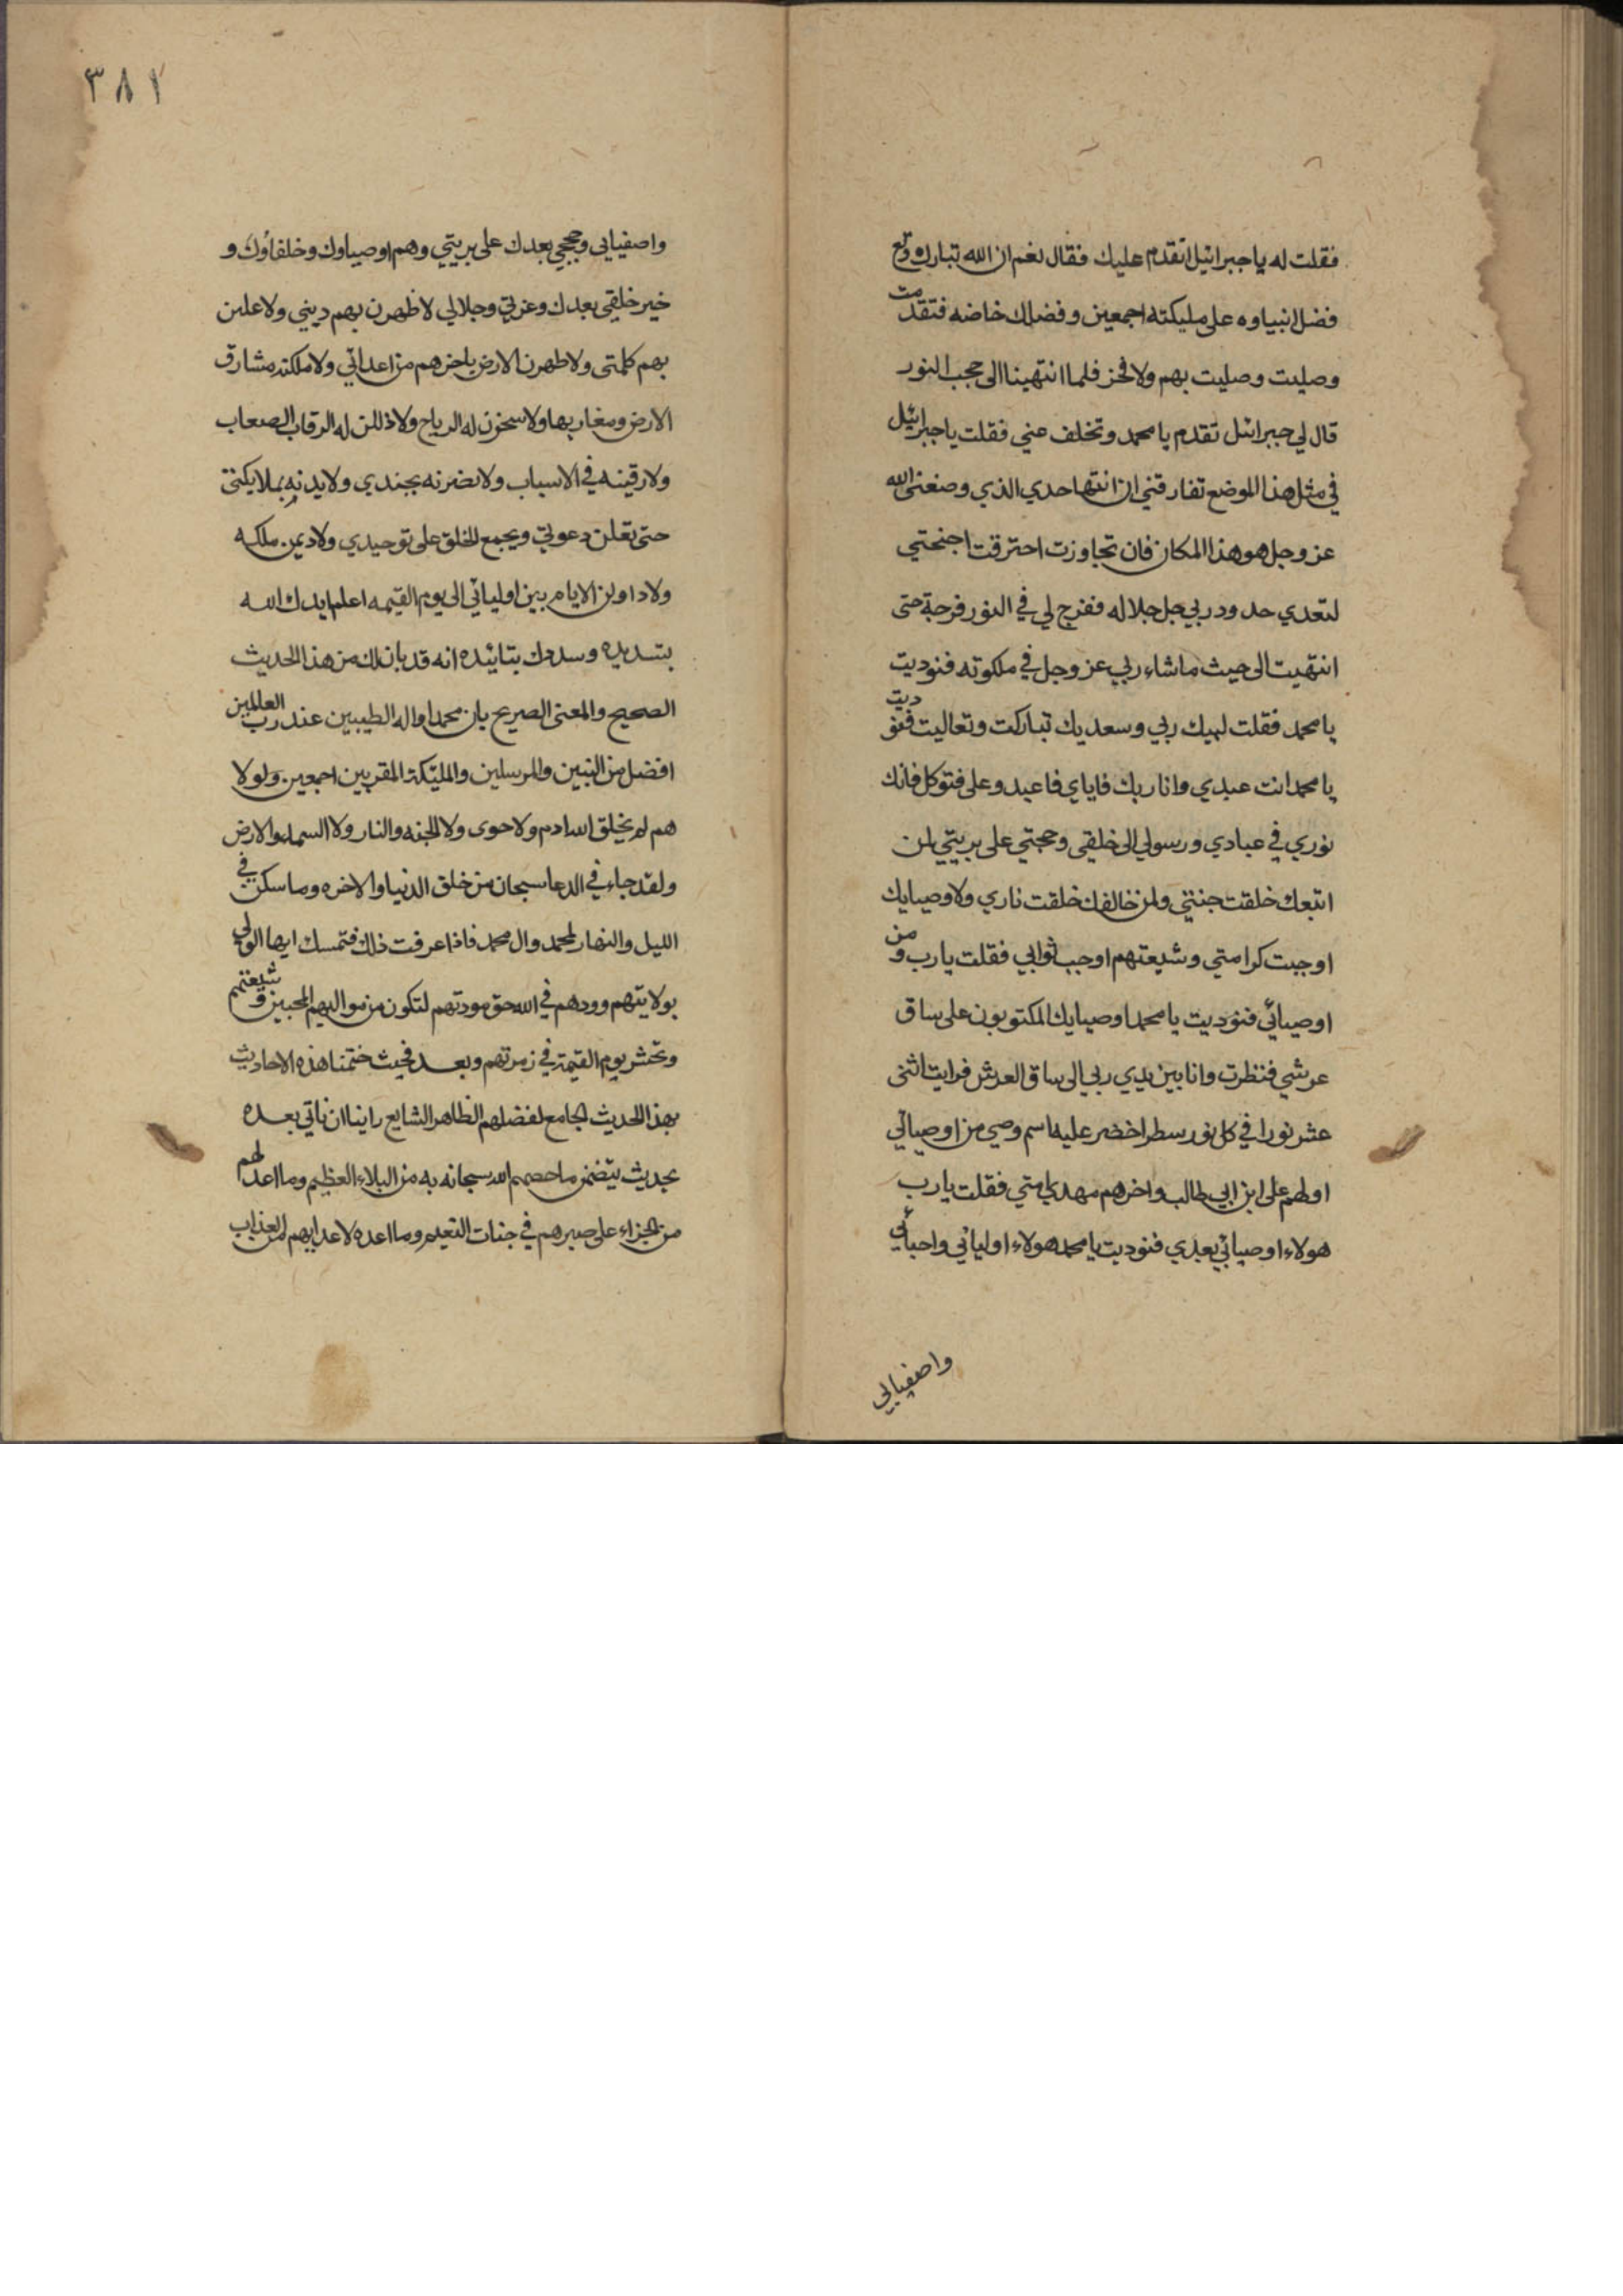 فقلت له يا جبرائيل اتقدم عليك فقال نعم ان الله تبارك وتع
فضل انبياوه على مليكته اجمعين وفضلك خاضه فتقدمت
وصليت وصليت بهم ولا فخز فلما انتهينا الى حجب النور
قال لي جبرائل تقدم يا محمد وتخلف عني فقلت يا جبرائيل
في مثل هذا الموضع تفارقني ان انتها حدي الذي وضعني الله
عز وجل هو هذا المكان فان تجاوزت احترقت اجنحتي
لتعدي حدود ربي جل جلاله ففزج لي في النور فرجة حتى
انتهيت الى حيث ما شاء ربي عز وجل في ملكوته فنوديت
يا محمد فقلت لبيك ربي وسعديك تباركت وتعاليت فنوديت
يا محمد انت عبدي وانا ربك فاياي فاعبد وعلى فتوكل فانك
نوري في عبادي ورسولي الى خلقي وحجتي على بريتي لمن
اتبعك خلقت جنتي ولمن خالفك خلقت ناري ولاوصيايك
اوجبت كرامتي وشيعتهم اوجب ثوابي فقلت يارب ومن
اوصيائي فنوديت يا محمد اوصيايك المكتوبون على ساق
عرشي فنظرت وانا بين يدي ربي الى ساق العرش فرايت اثنى
عشر نورا في كل نور سطر اخضر عليه اسم وصي من اوصيائي
اولهم على ابن ابي طالب واخرهم مهدي امتي فقلت يارب
هولاء اوصيائي بعدي فنوديت يا محمد هولاء اوليائي واحبائي
واصفيايي
٣٨١
واصفيايى وحججي بعدك على بريتي وهم اوصياوك وخلفاؤك و
خير خلقي بعدك وعزتي وجلالي لاظهرن بهم ديني ولاعلين
بهم كلمتى ولاطهرن الارض باخرهم من اعدائي ولاملكنه مشارق
الارض ومغاربها ولاسخرن له الرياح ولاذللن له الرقاب الصعاب
ولارقينه في الاسباب ولانضرنه بجندي ولايدنه بملايكتى
حتى تعلن دعوتي ويجمع الخلق على توحيدي ولاديمن ملكه
ولاداولن الايام بين اوليائي الى يوم القيمه اعلم ايدك الله
بتسديده وسددك بتائيده انه قد بان لك من هذا الحديث
الصحيح والمعنى الصريح بان محمدا واله الطيبين عند رب العالمين
افضل من النبين والمرسلين والمليكة المقربين اجمعين ولولا
هم لم يخلق الله ادم ولا حوى ولا الجنه والنار ولا السماء والارض
ولقد جاء في الدعا سبحان من خلق الدنيا والاخره وما سكن في
الليل والنهار لمحمد وال محمد فاذا عرفت ذلك فتمسك ايها الولي
بولايتهم وودهم في الله حق مودتهم لتكون من مواليهم المحبين وشيعتهم
وتحشر يوم القيمة في زمرتهم وبعد فحيث ختمنا هذه الاحاديث
بهذا الحديث الجامع لفضلهم الظاهر الشايع راينا ان ناتي بعده
بحديث يتضمن ما خصهم الله سبحانه به من البلاء العظيم وما اعد لهم
من الجزاء على صبرهم في جنات النعيم وما اعده لاعدايهم من العذاب